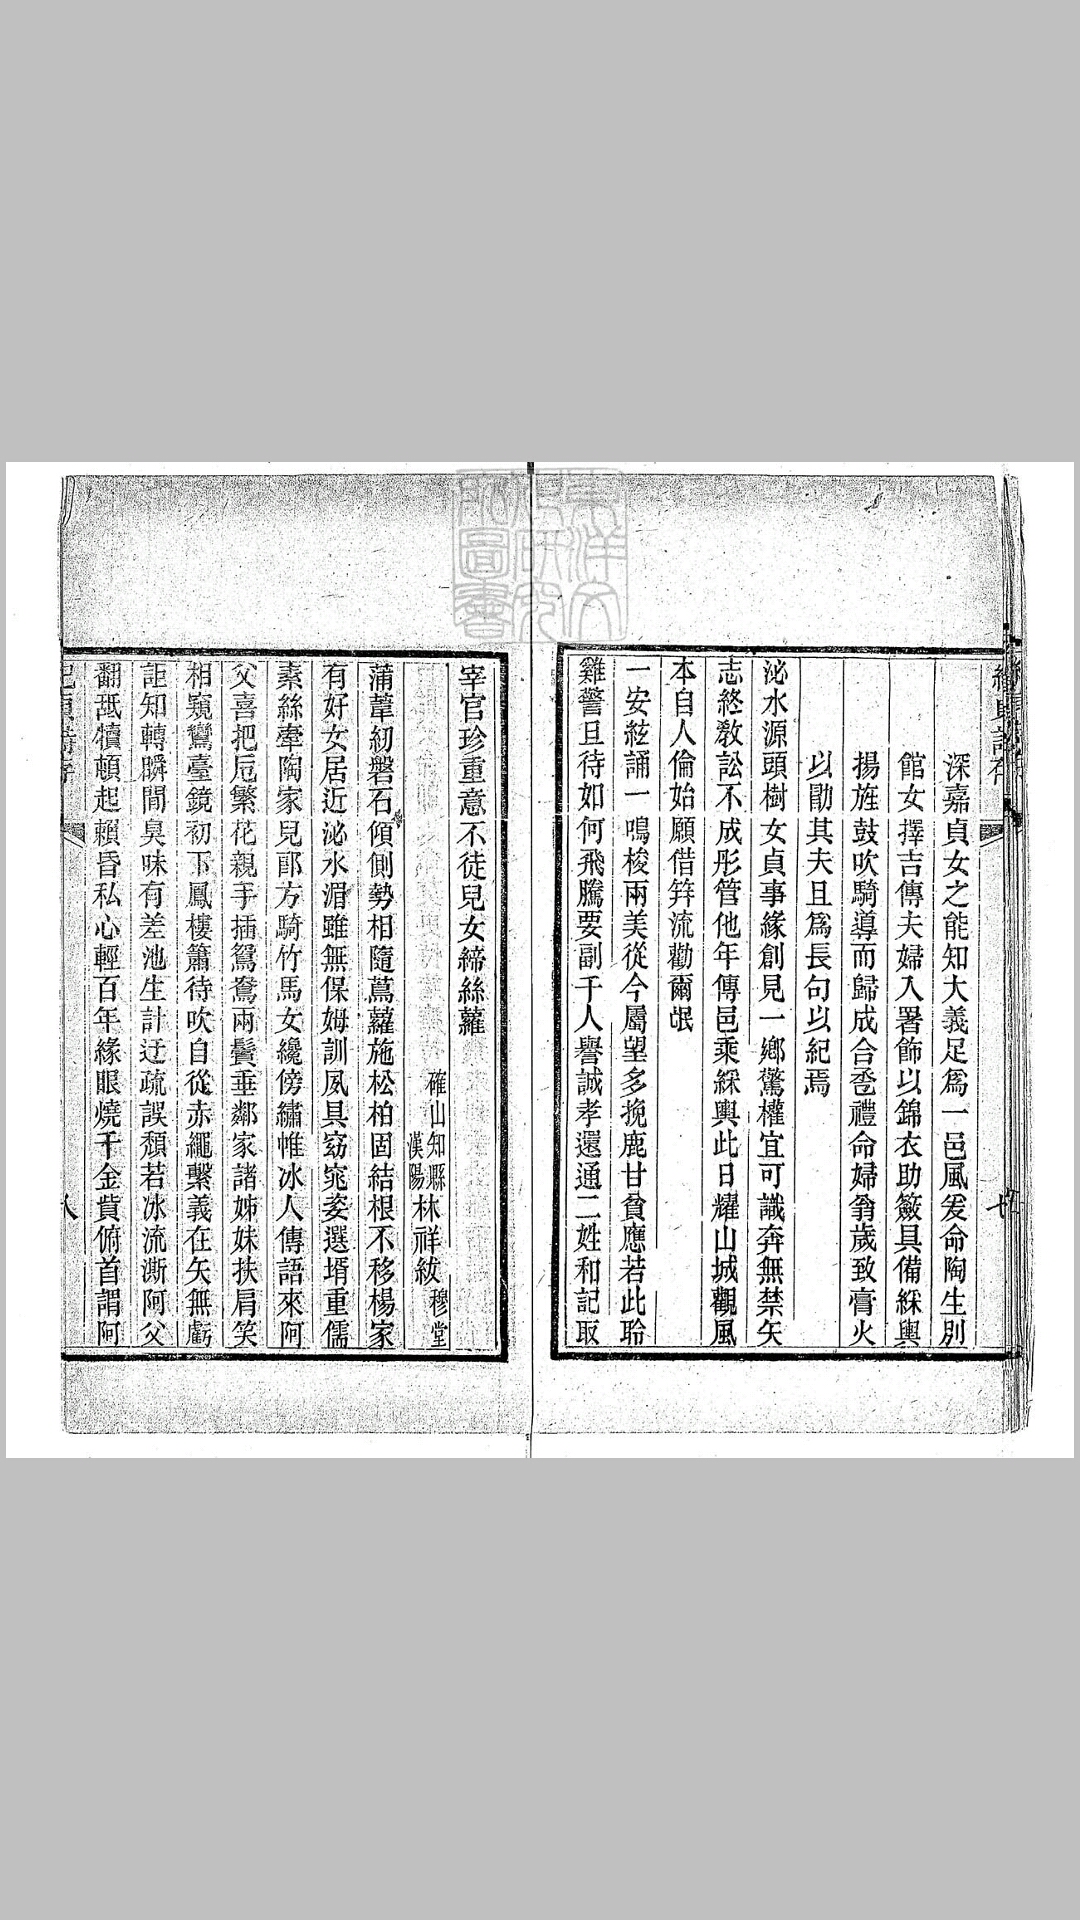 深嘉貞女之能知大義足爲一邑風爰命陶生別
館女擇吉傳夫婦入署飾以錦衣助簽具備綵輿
揚旌鼓吹騎導而歸成合卺禮命婦翁歲致膏火
以勖其夫且爲長句以紀焉
泌水源頭樹女貞事緣創見一鄉驚權宜可識奔無禁矢
志終教訟不成彤管他年傳邑乘綵輿此日耀山城觀風
本自人倫始願借笄流勸爾氓
一安絃誦一鳴梭兩美從今屬望多挽鹿甘貧應若此聆
雞警旦待如何飛騰要副千人譽誠孝還通二姓和記取
宰官珍重意不徒兒女締絲蘿
確山知縣漢陽林祥紱穆堂
蒲葦紉磐石傾側勢相隨蔦蘿施松柏固結根不移楊家
有好女居近泌水湄雖無保姆訓夙具窈窕姿選壻重儒
素絲牽陶家兒郎方騎竹馬女纔傍繡帷冰人傳語來阿
父喜把卮繁花親手插鴛鴦兩鬢垂鄰家諸姊妹扶肩笑
相窺鸞臺鏡初下鳳樓簫待吹自從赤繩繫義在矢無虧
詎知轉瞬間臭味有差池生計迂疏誤頹若冰流澌阿父
翻舐犢頓起賴昏私心輕百年緣眼燒千金貲俯首謂阿
八